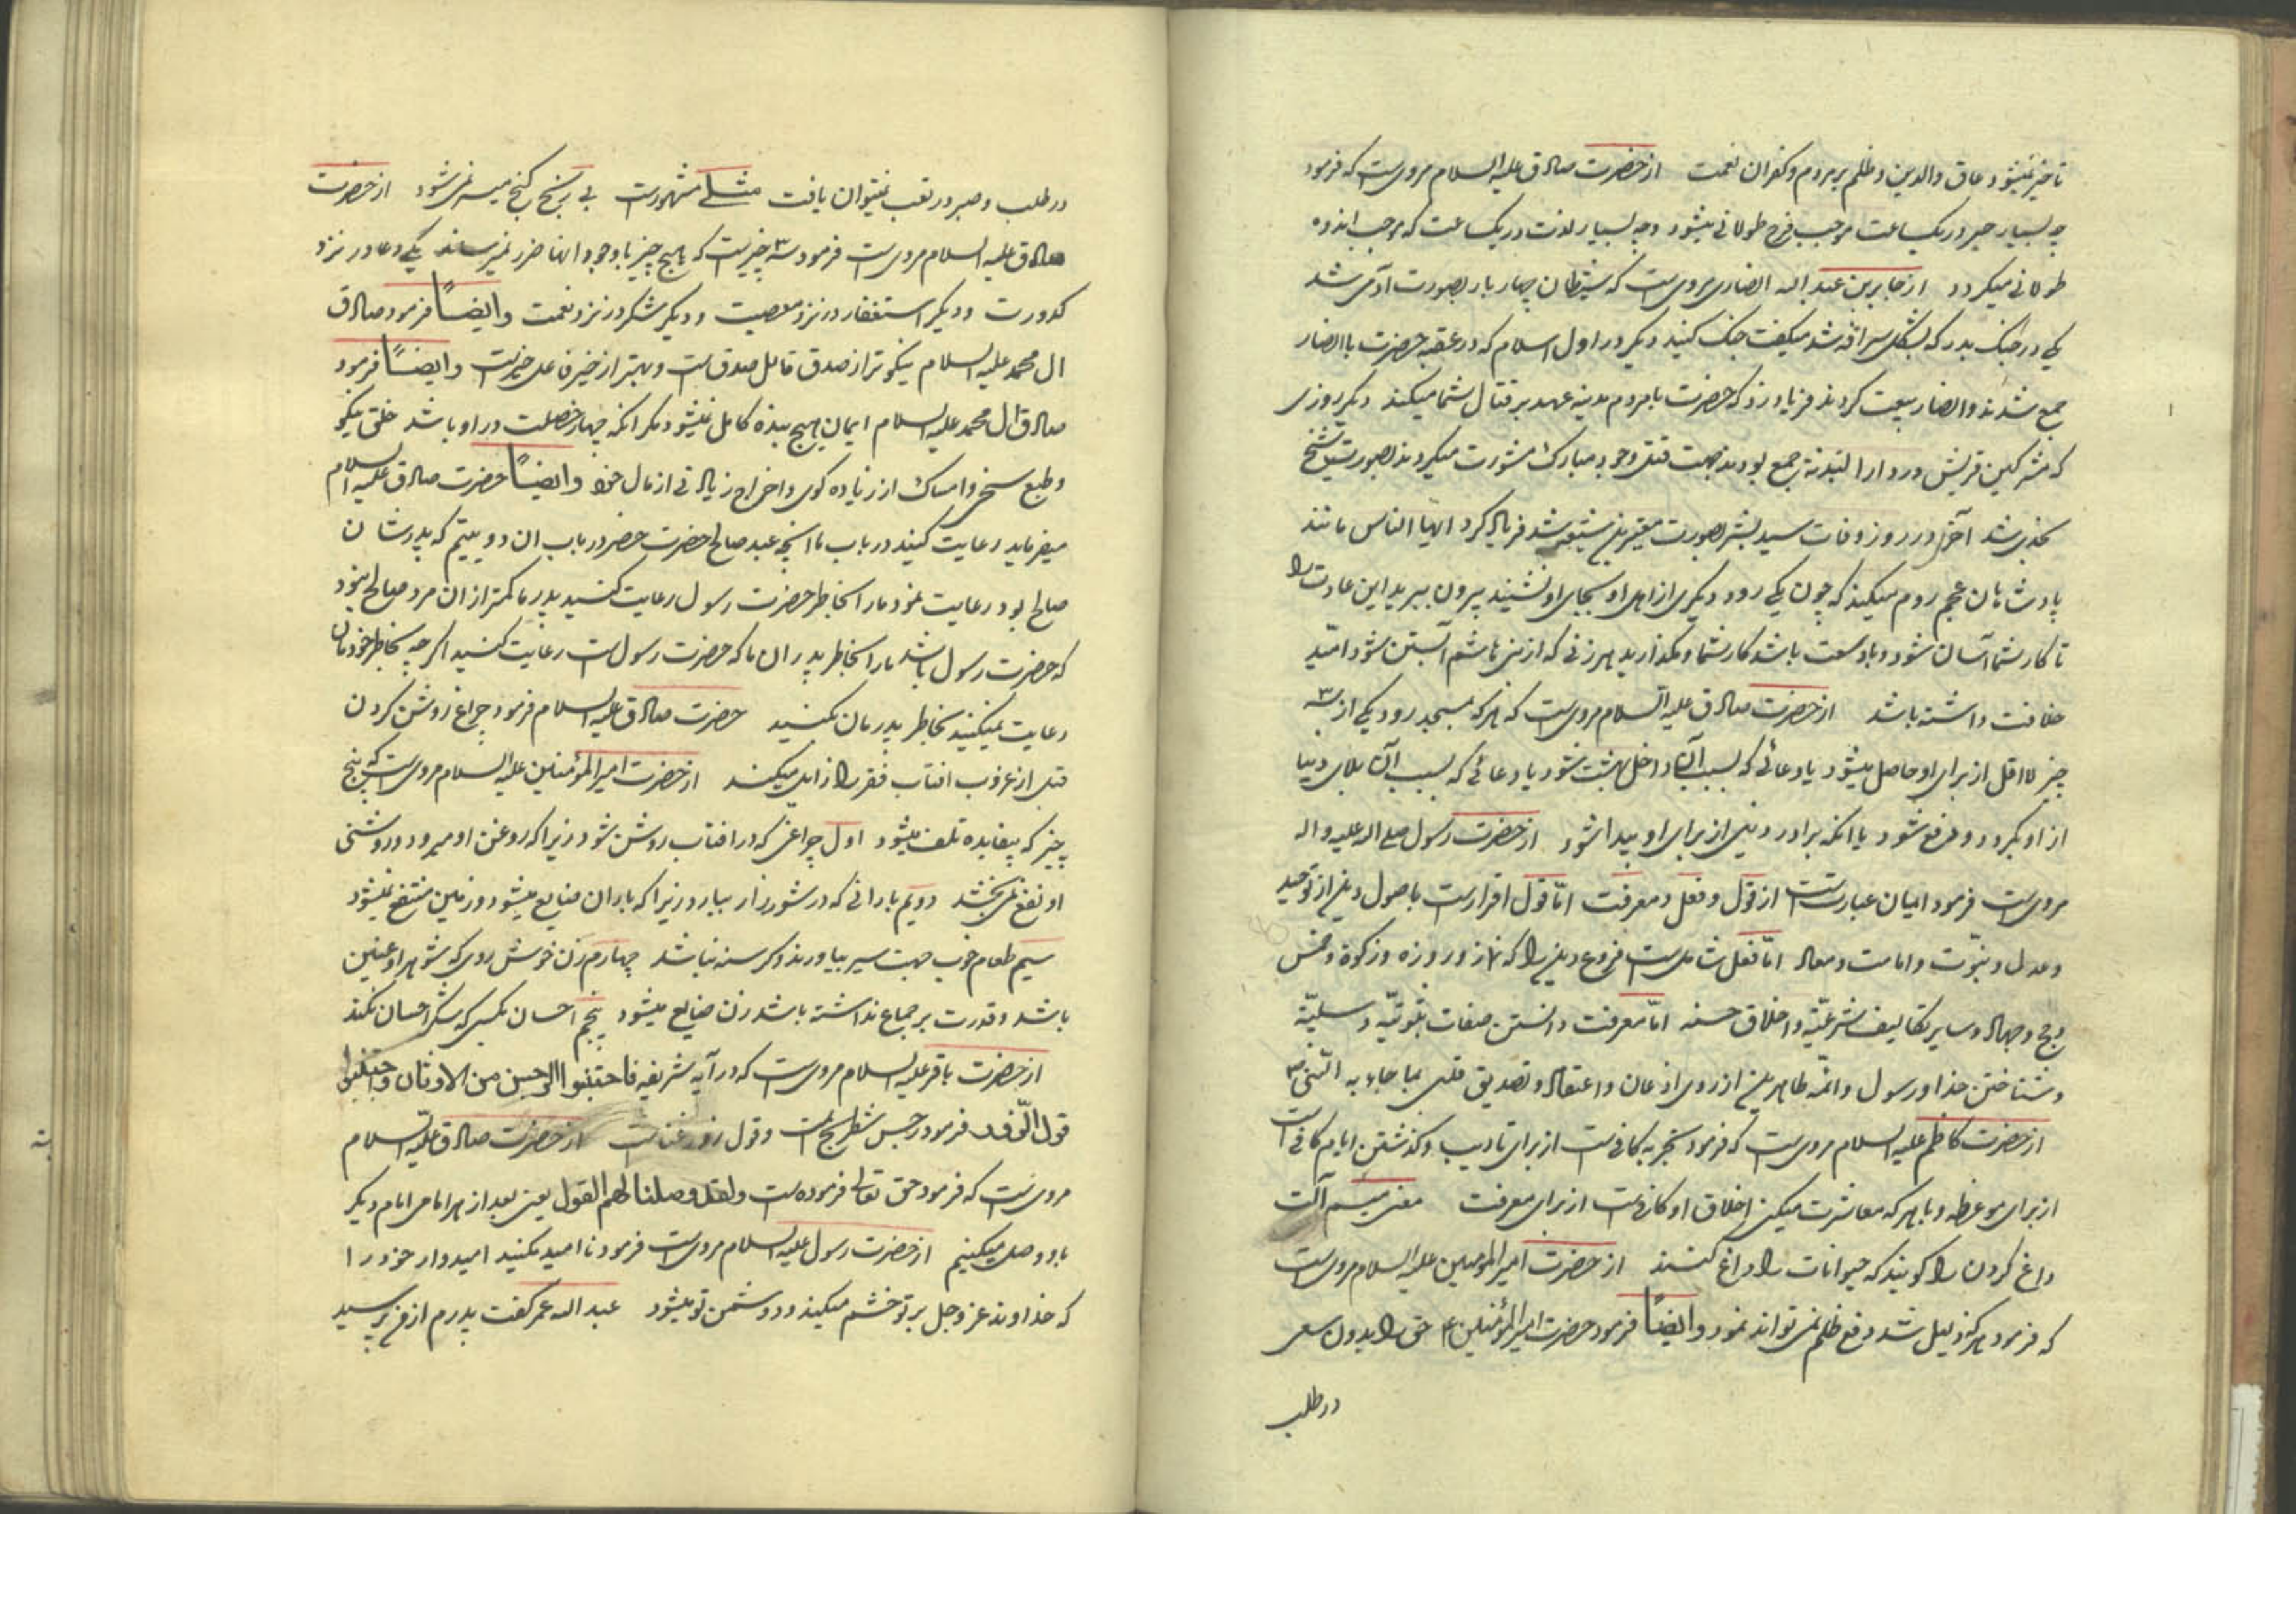 تاخیر نمیشود عاق والدین و ظلم بر مردم و کفران نعمت از حضرت صادق علیه السلام مرویست که فرمود
چه بسیار صبر در یکساعت موجب فرح طولانی میشود و چه بسیار لذت در یکساعت که موجب اندوه
طولانی میکردد از جابر بن عبد اله انصاری مرویست که شیطان چهار بار بصورت آدمی شد
یکی در جنک بدر که بشکل سراقه شد میکفت جنک کنید دیکر در اول اسلام که در عقبه حضرت با انصار
جمع شدند و انصار بیعت کردند فریاد زد که حضرت با مردم مدینه عهد بر قتال شما میکند دیکر روزی
که مشرکین قریش در دار الندنة جمع بودند جهت قتل وجود مبارک مشورت میکردند بصورت شیخ
نجدی شد آخر در روز وفات سید بشر بصورت مغیرة بن شیبه شد فریاد کرد ایها الناس مانند
پادشاهان عجم و روم میکنید که چون یکی رود دیکری از اهل او بجای او نشیند بیرون ببرید این عادت را
تا کار شما آسان شود و با وسعت باشد کار شما و مکذارید هر زنی که از بنی هاشم آبستن شود امید
خلافت داشته باشد از حضرت صادق علیه السلام مرویست که هر که بمسجد رود یکی از سه
چیز لا اقل از برای او حاصل میشود یا دعائی که بسبب آن داخل بهشت شود یا دعائی که بسبب آن بلای دنیا
از او بکردد و مرفوع شود یا انکه برادر دینی از برای او پیدا شود از حضرت رسول صلی اله علیه و اله
مرویست فرمود ایمان عبارتست از قول و فعل و معرفت امّا قول اقرارست باصول دین از توحید
و عدل و نبوّت و امامت و معاد امّا فعل شاملست فروع دین را که نماز و روزه و زکوة و خمس
و حج و جهاد و سایر تکالیف شرعیّه و اخلاق حسنه امّا معرفت دانستن صفات ثبوتیّه و سلبیّه
و شناختن خدا و رسول و ائمّه طاهرین از روی اذعان و اعتقاد و تصدیق قلبی بما جاء به النّبی ص
از حضرت کاظم علیه السلام مرویست که فرمود تجربه کافیست از برای تادیب و کذشتن ایام کافی است
از برای موعظه و با هر که معاشرت میکنی اخلاق او کافیست از برای معرفت معنی میسم آلت
داغ کردن را کویند که حیوانات را داغ کنند از حضرت امیر المؤمنین علیه السلام مرویست
که فرمود هر که ذلیل شد دفع ظلم نمی تواند نمود وایضاً فرمود حضرت امیر المؤمنین ع حق را بدون سعی
در طلب
در طلب و صبر در تعب نمیتوان یافت مثلی مشهورست بی رنج کنج میسر نمی شود از حضرت
صادق علیه السلام مرویست فرمود سه چیزیست که هیچ چیز با وجود انها ضرر نمیرساند یکی دعا در نزد
کدورت و دیکر استغفار در نزد معصیت و دیکر شکر در نزد نعمت وایضاً فرمود صادق
ال محمد علیه السلام نیکوتر از صدق قایل صدقست و بهتر از خیر فاعل خیرست وایضاً فرمود
صادق ال محمد علیه السلام ایمان هیچ بنده کامل نمیشود مکر انکه چهار خصلت در او باشد خلق نیکو
و طبع سخی و امساک از زیاده کوی و اخراج زیادتی از مال خود وایضاً حضرت صادق علیه السلام
میفرماید رعایت کنید در باب ما انچه عبد صالح حضرت خضر در باب ان دو یتیم که پدرشان
صالح بود رعایت نمود ما را بخاطر حضرت رسول رعایت کنید پدر ما کمتر از ان مرد صالح نبود
که حضرت رسول باشد ما را بخاطر پدران ما که حضرت رسولست رعایت کنید اکر چه بخاطر خودمان
رعایت نمیکنید بخاطر پدرمان بکنید حضرت صادق علیه السلام فرمود چراغ روشن کردن
قبل از غروب افتاب فقر را زایل میکند از حضرت امیر المؤمنین علیه السلام مرویست که پنج
چیز که بیفایده تلف میشود اول چراغی که در افتاب روشن شود زیرا که روغن او میرود و روشنی
او نفع نمی بخشد دویم بارانی که در شوره زار ببارد زیرا که باران ضایع میشود و زمین منتفع نمیشود
سیم طعام خوب جهت سیر بیاورند و کرسنه نباشد چهارم زن خوش روی که شوهر او عنین
باشد و قدرت بر جماع نداشته باشد زن ضایع میشود پنجم احسان بکسی که شکر احسان نکند
از حضرت باقر علیه السلام مرویست که در آیه شریفه فاجتنبوا الرجس من الاوثان واجتنبوا
قول الزّور فرمود رجس شطرنج است و قول زور غناست از حضرت صادق علیه السلام
مرویست که فرمود حق تعالی فرموده است ولقد وصلنا لهم القول یعنی بعد از هر امامی امام دیکر
باو وصل میکنیم از حضرت رسول علیه السلام مرویست فرمود نا امید مکنید امیدوار خود را
که خداوند عز و جل بر تو خشم میکند و دشمن تو میشود عبد اله عمر کفت پدرم از من پرسید